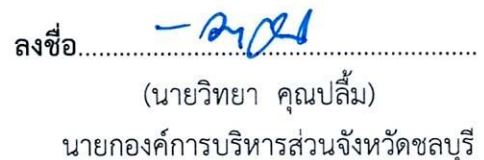 ลงชื่อ................................................
(นายวิทยา คุณปลื้ม)
นายกองค์การบริหารส่วนจังหวัดชลบุรี